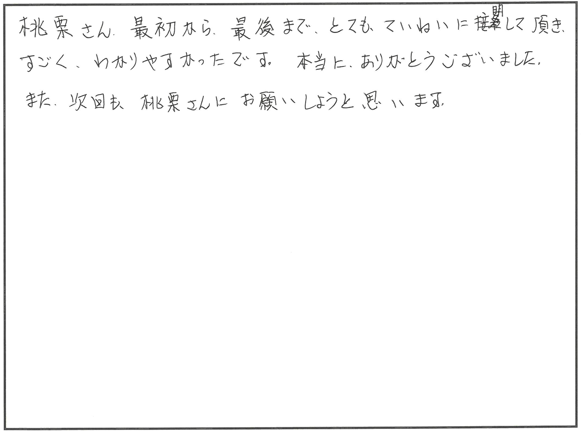 桃栗さん、最初から、最後まで、とても、ていねいに接して頂き、
すごく、わかりやすかったです。 本当に、ありがとうございました。
また、次回も、桃栗さんに お願いしようと思います。